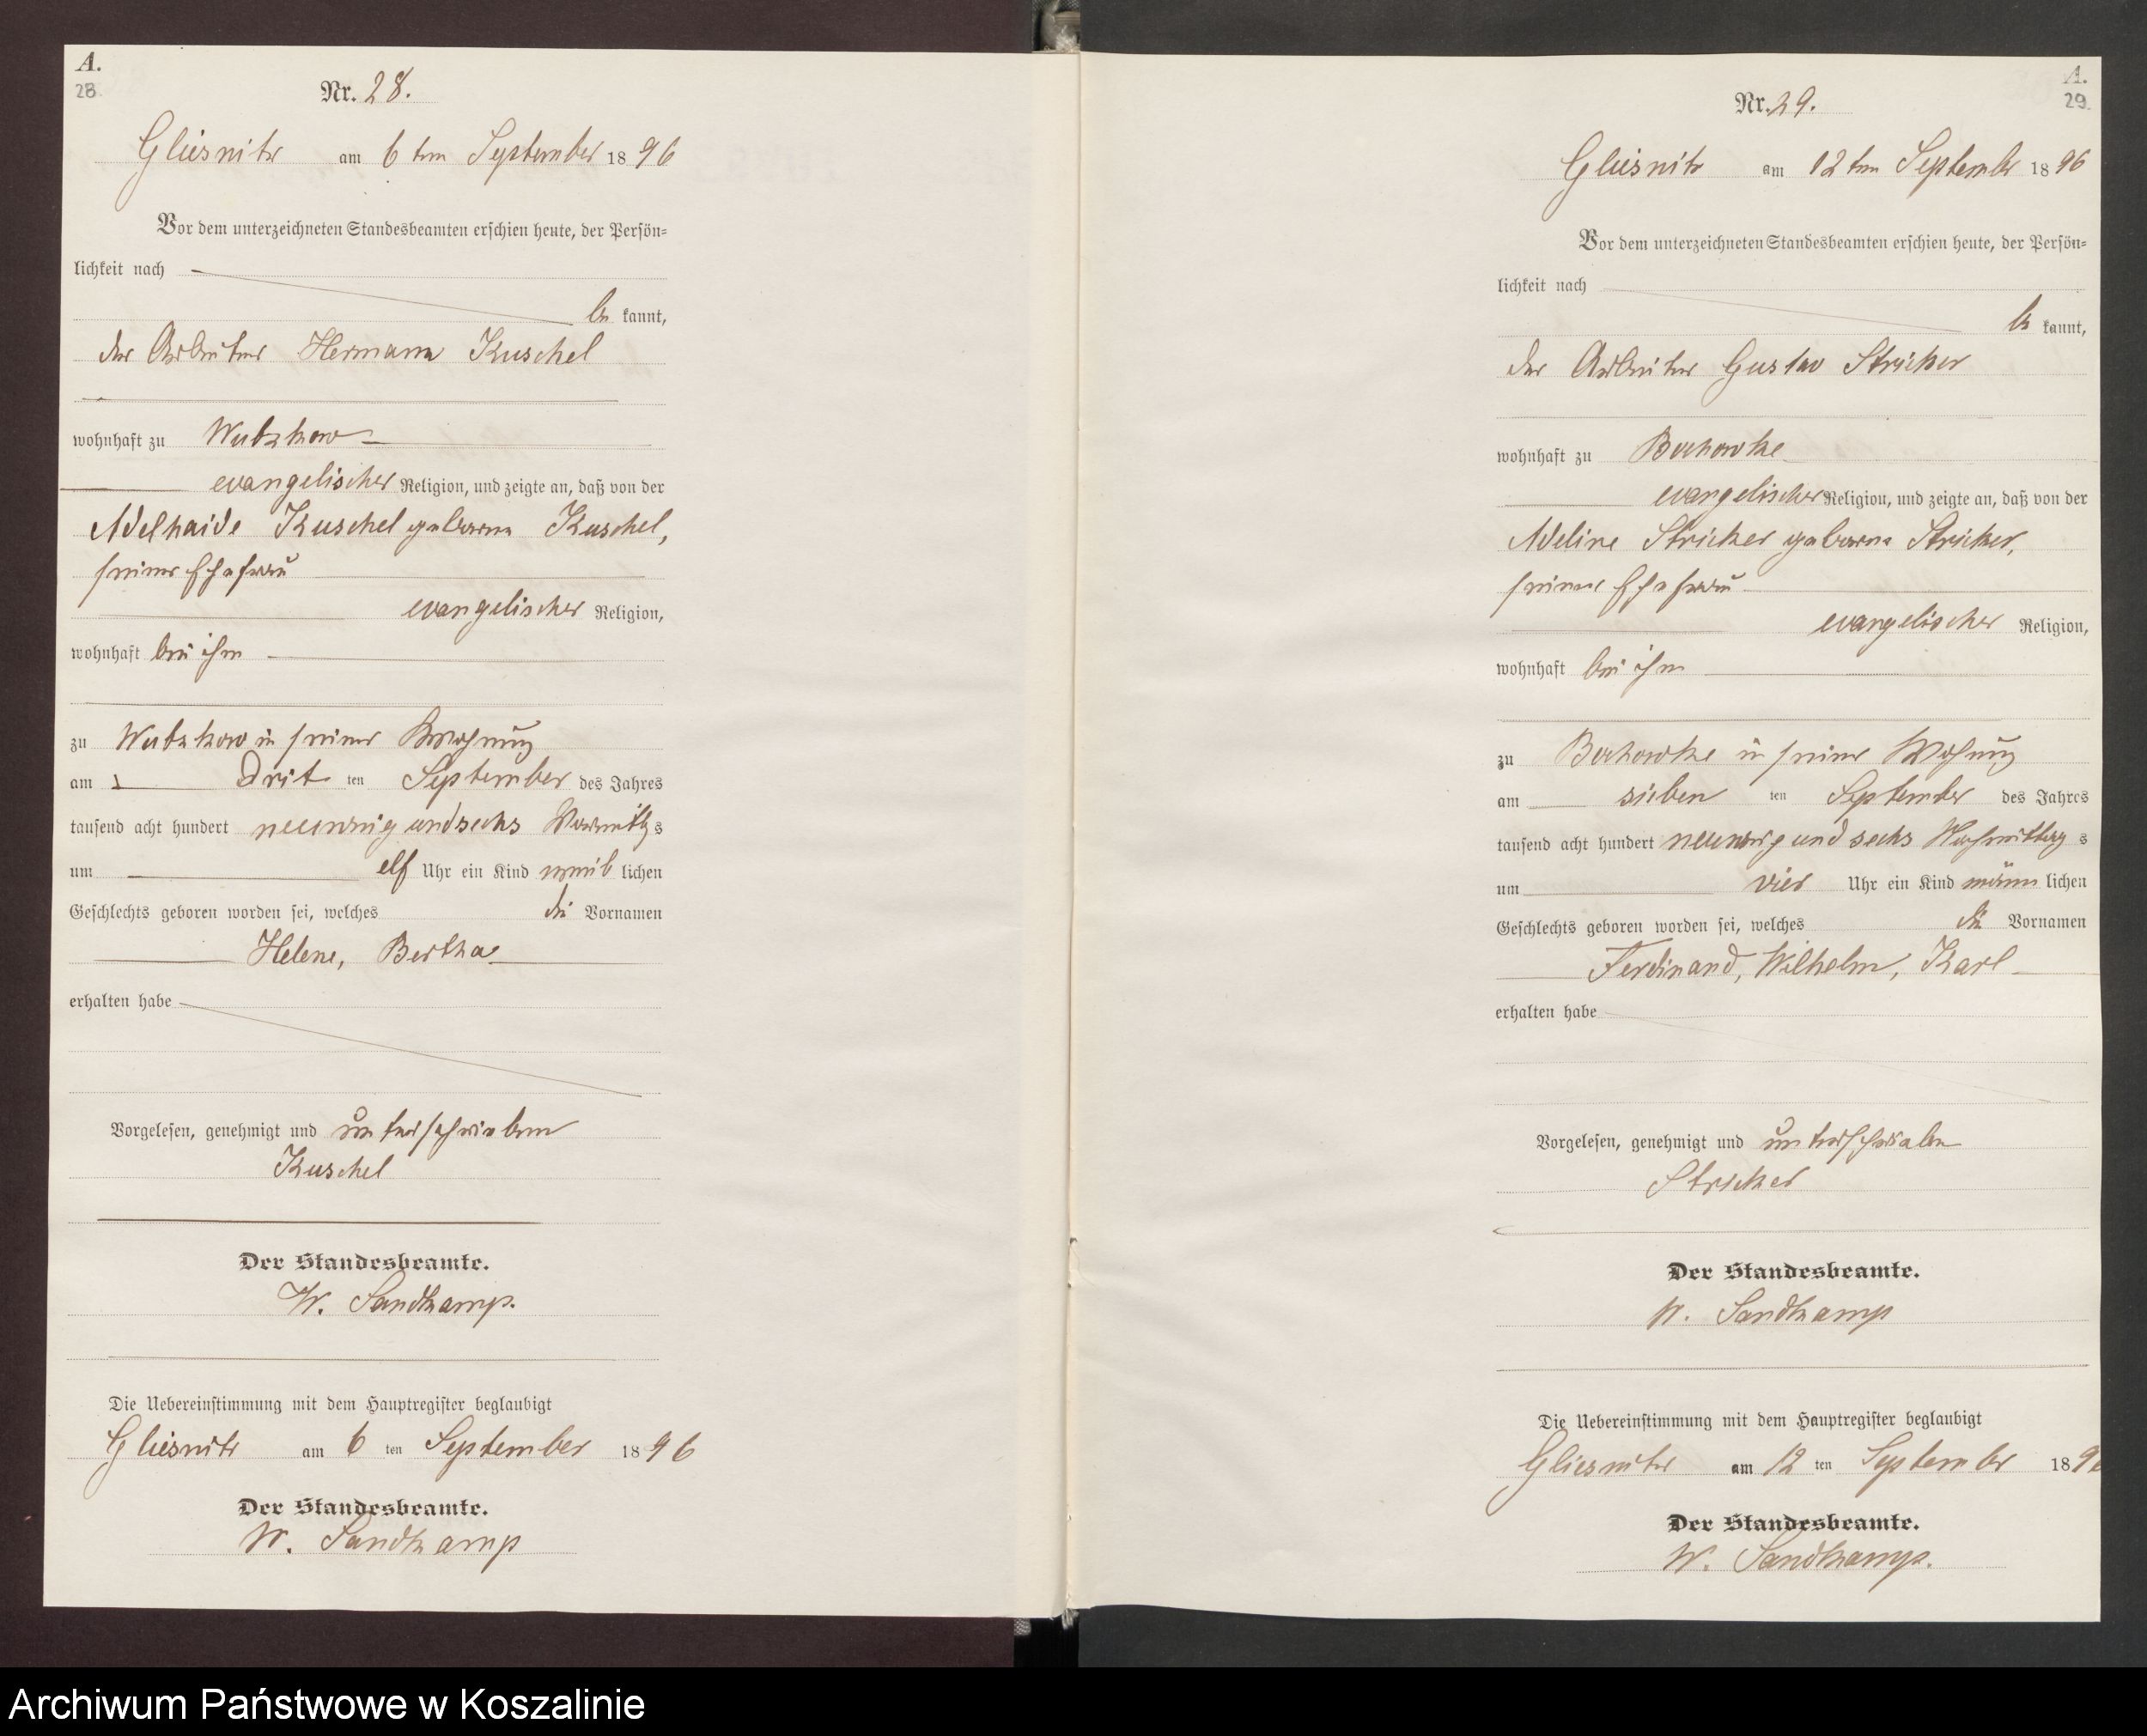 A.
28
Nr. 28.
Gliesnitz am 6 ten September 1896
Vor dem unterzeichneten Standesbeamten erschien heute, der Persön=
lichkeit nach
be kannt,
der Arbeiter Hermann Kuschel
wohnhaft zu Wutzkow
evangelischer Religion, und zeigte an, daß von der
Adelhaide Kuschel geborene Kuschel,
seiner Ehefrau
evangelischer Religion,
wohnhaft bei ihm
zu Wutzkow in seiner Wohnung
am drit ten September des Jahres
tausend acht hundert neunzig und sechs Vormittags
um elf Uhr ein Kind weib lichen
Geschlechts geboren worden sei, welches die Vornamen
Helene, Bertha
erhalten habe
Vorgelesen, genehmigt und unterschrieben
Kuschel
Der Standesbeamte.
W. Sandkamp.
Die Uebereinstimmung mit dem Hauptregister beglaubigt
Gliesnitz am 6 ten September 1896
Der Standesbeamte.
W. Sandkamp
A.
29.
Nr. 29.
Gliesnitz am 12 ten September 1896
Vor dem unterzeichneten Standesbeamten erschien heute, der Persön=
lichkeit nach
be kannt,
der Arbeiter Gustav Stricker
wohnhaft zu Bochowke
evangelischer Religion, und zeigte an, daß von der
Adeline Stricker geborne Stricker,
seiner Ehefrau
evangelischer Religion,
wohnhaft bei ihm
zu Bochowke in seiner Wohnung
am sieben ten September des Jahres
tausend acht hundert neunzig und sechs Nachmittag s
um vier Uhr ein Kind männ lichen
Geschlechts geboren worden sei, welches die Vornamen
Ferdinand, Wilhelm, Karl
erhalten habe
Vorgelesen, genehmigt und unterschrieben
Stricker
Der Standesbeamte.
W. Sandkamp
Die Uebereinstimmung mit dem Hauptregister beglaubigt
Gliesnitz am 12 ten September 189
Der Standesbeamte.
W. Sandkamp.
Archiwum Państwowe w Koszalinie